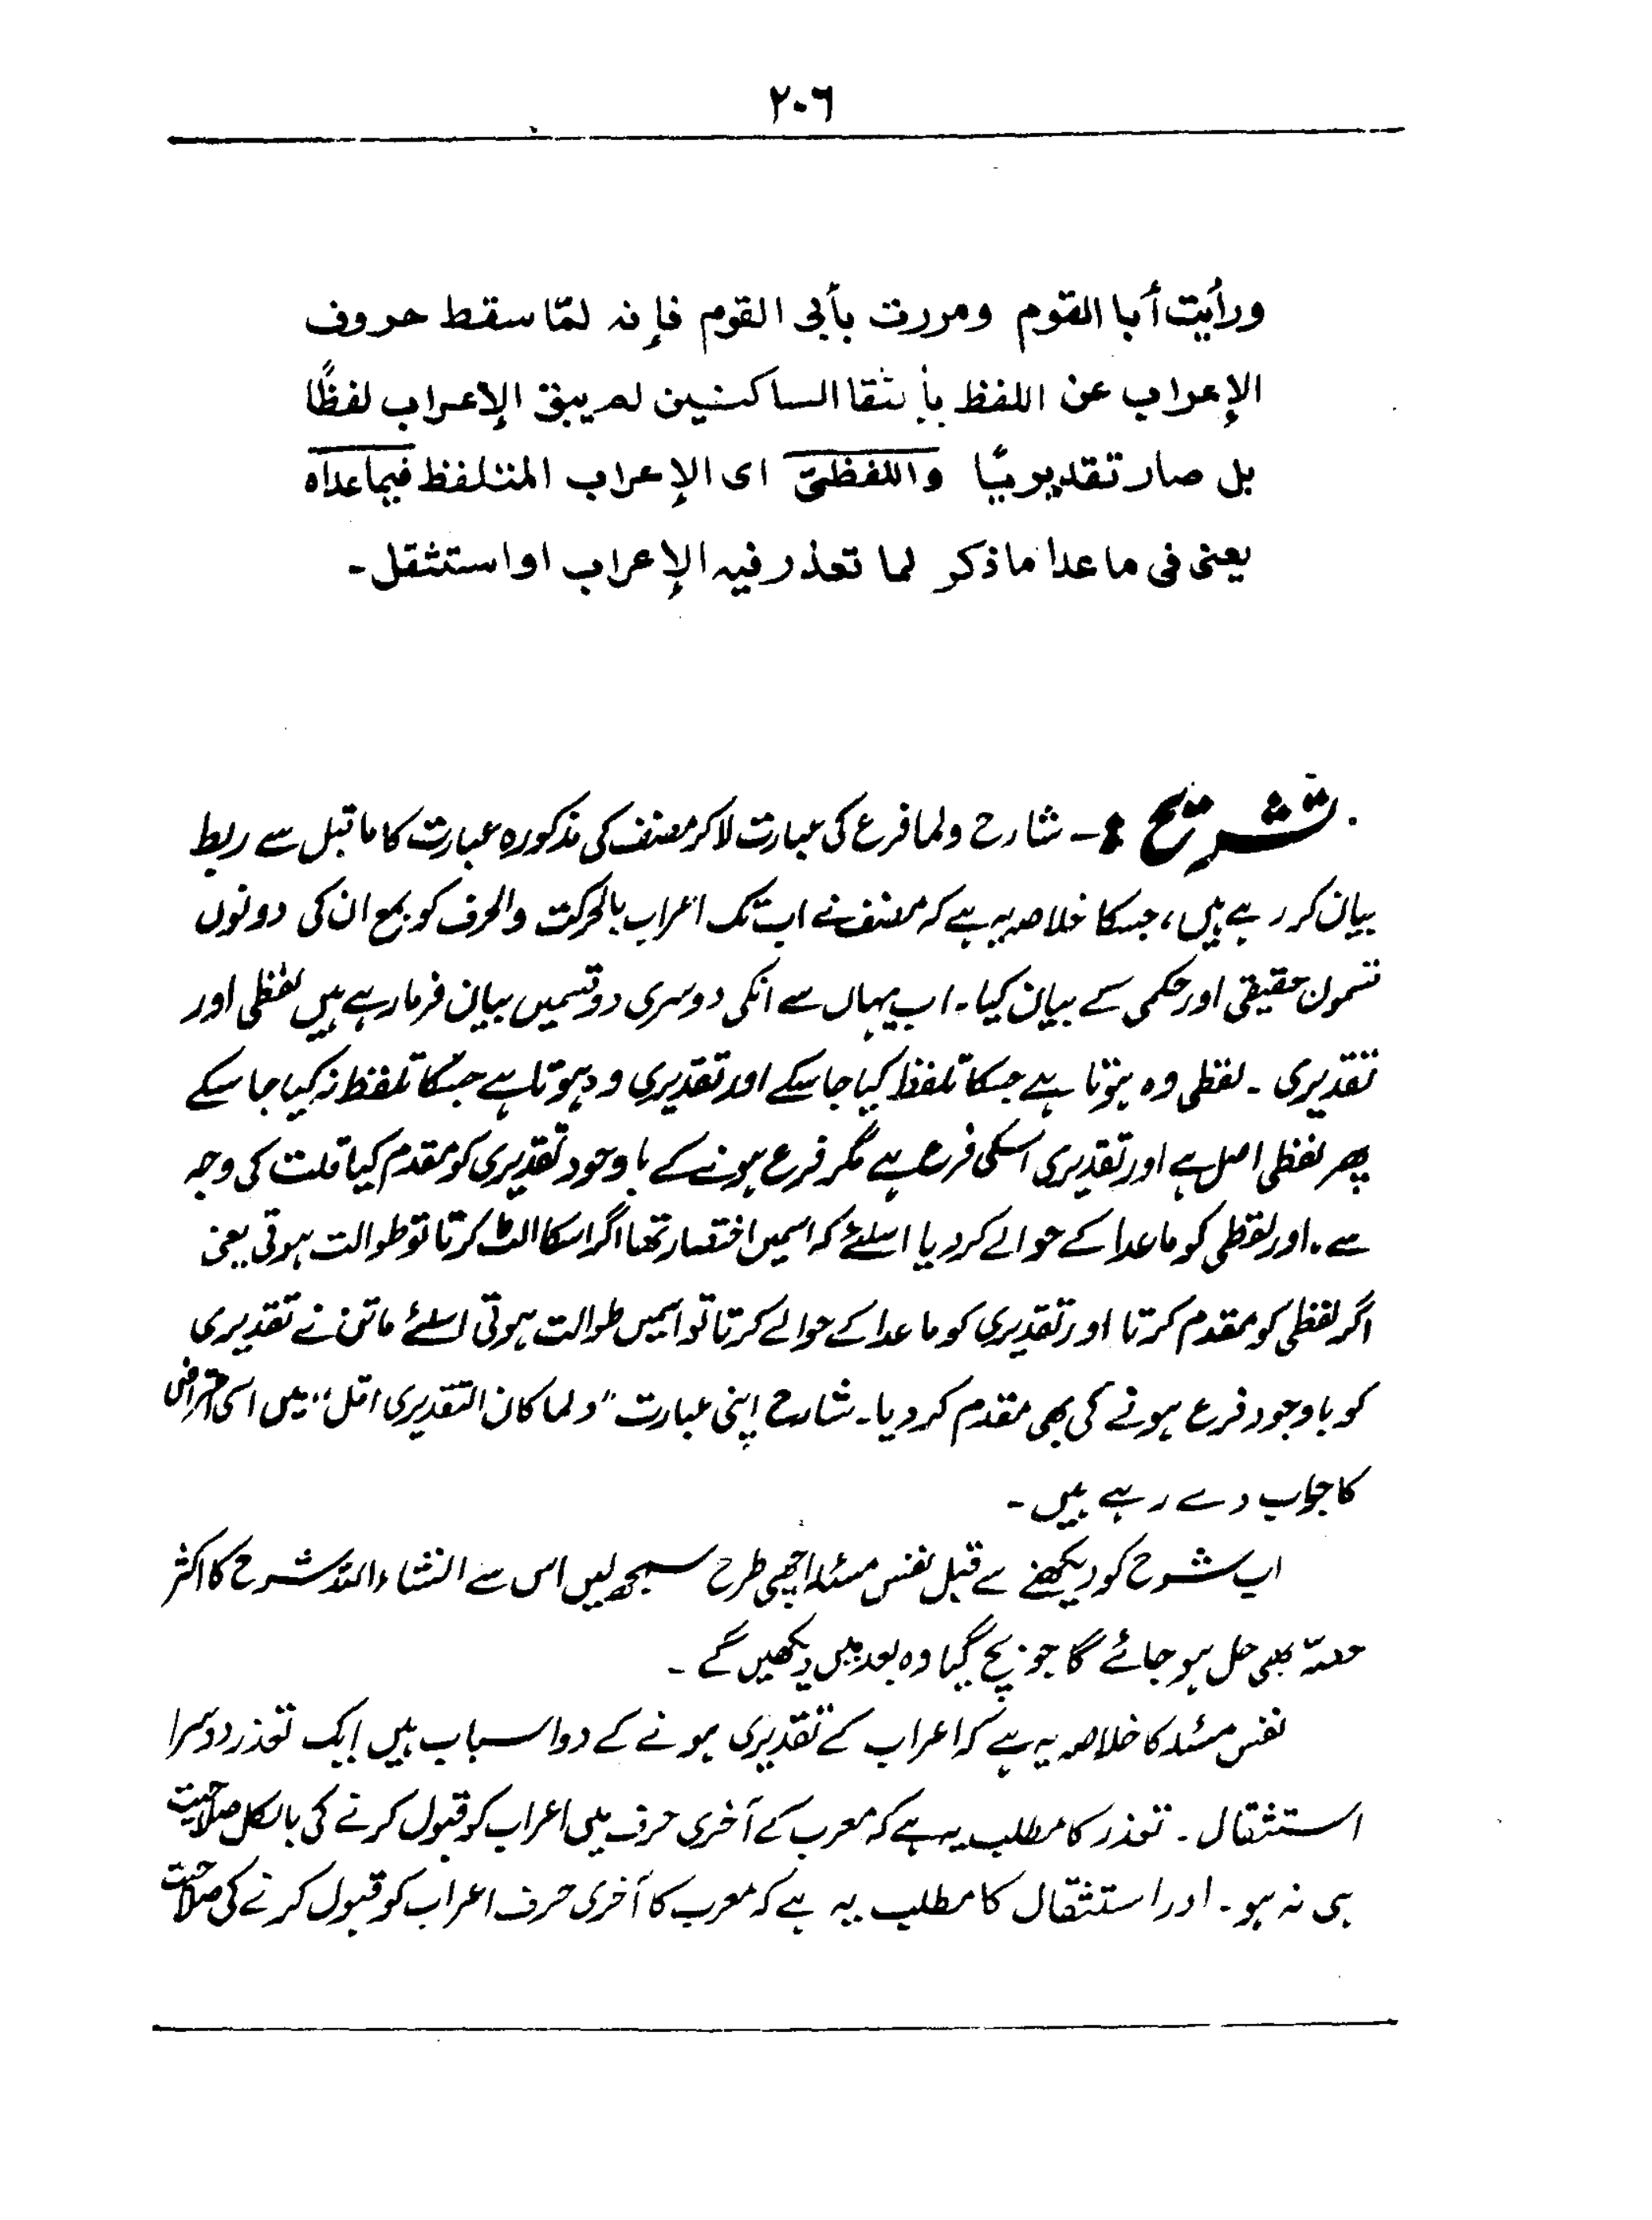 ۲۰۶
ورأيت أبا القوم ومررت بأبى القوم فإنه لمّا سقط حروف
الإعراب عن اللفظ بإلتقا الساكنين لم يبق الإعراب لفظًا
بل صار تقديريًّا واللفظىّ اى الإعراب المتلفظ فيما عداه
يعنى فى ما عدا ما ذكر لما تعذر فيه الإعراب او استثقل۔
تشریح :۔ شارح ولما فرع کی عبارت لا کر مصنف کی مذکورہ عبارت کا ماقبل سے ربط
بیان کر رہے ہیں، جسکا خلاصہ یہ ہے کہ مصنف نے اب تک اعراب بالحرکت والحرف کو بمع ان کی دونوں
قسموں حقیقی اور حکمی کے بیان کیا۔ اب یہاں سے انکی دوسری دو قسمیں بیان فرمارہے ہیں لفظی اور
تقدیری ۔ لفظی وہ ہوتا ہے جسکا تلفظ کیا جا سکے اور تقدیری وہ ہوتا ہے جسکا تلفظ نہ کیا جا سکے
پھر لفظی اصل ہے اور تقدیری اسکی فرع ہے مگر فرع ہونے کے باوجود تقدیری کو مقدم کیا قلت کی وجہ
سے ۔ اور لفظی کو ماعدا کے حوالے کر دیا اسلئے کہ اسمیں اختصار تھا اگر اسکا الٹ کرتا تو طوالت ہوتی یعنی
اگر لفظی کو مقدم کرتا اور تقدیری کو ماعدا کے حوالے کرتا تو اسمیں طوالت ہوتی اسلئے ماتن نے تقدیری
کو باوجود فرع ہونے کی بھی مقدم کر دیا۔ شارح اپنی عبارت "ولما کان التقدیری اقل" میں اسی اعتراض
کا جواب دے رہے ہیں ۔
اب شرح کو دیکھنے سے قبل نفس مسئلہ اچھی طرح سمجھ لیں اس سے انشاء اللہ شرح کا اکثر
حصہّ بھی حل ہو جائے گا جو بچ گیا وہ بعد میں دیکھیں گے ۔
نفس مسئلہ کا خلاصہ یہ ہے کہ اعراب کے تقدیری ہونے کے دو اسباب ہیں ایک تعذر دوسرا
استثقال ۔ تعذر کا مطلب یہ ہے کہ معرب کے آخری حرف میں اعراب کو قبول کرنے کی بالکل صلاحیت
ہی نہ ہو ۔ اور استثقال کا مطلب یہ ہے کہ معرب کا آخری حرف اعراب کو قبول کرنے کی صلاحیت